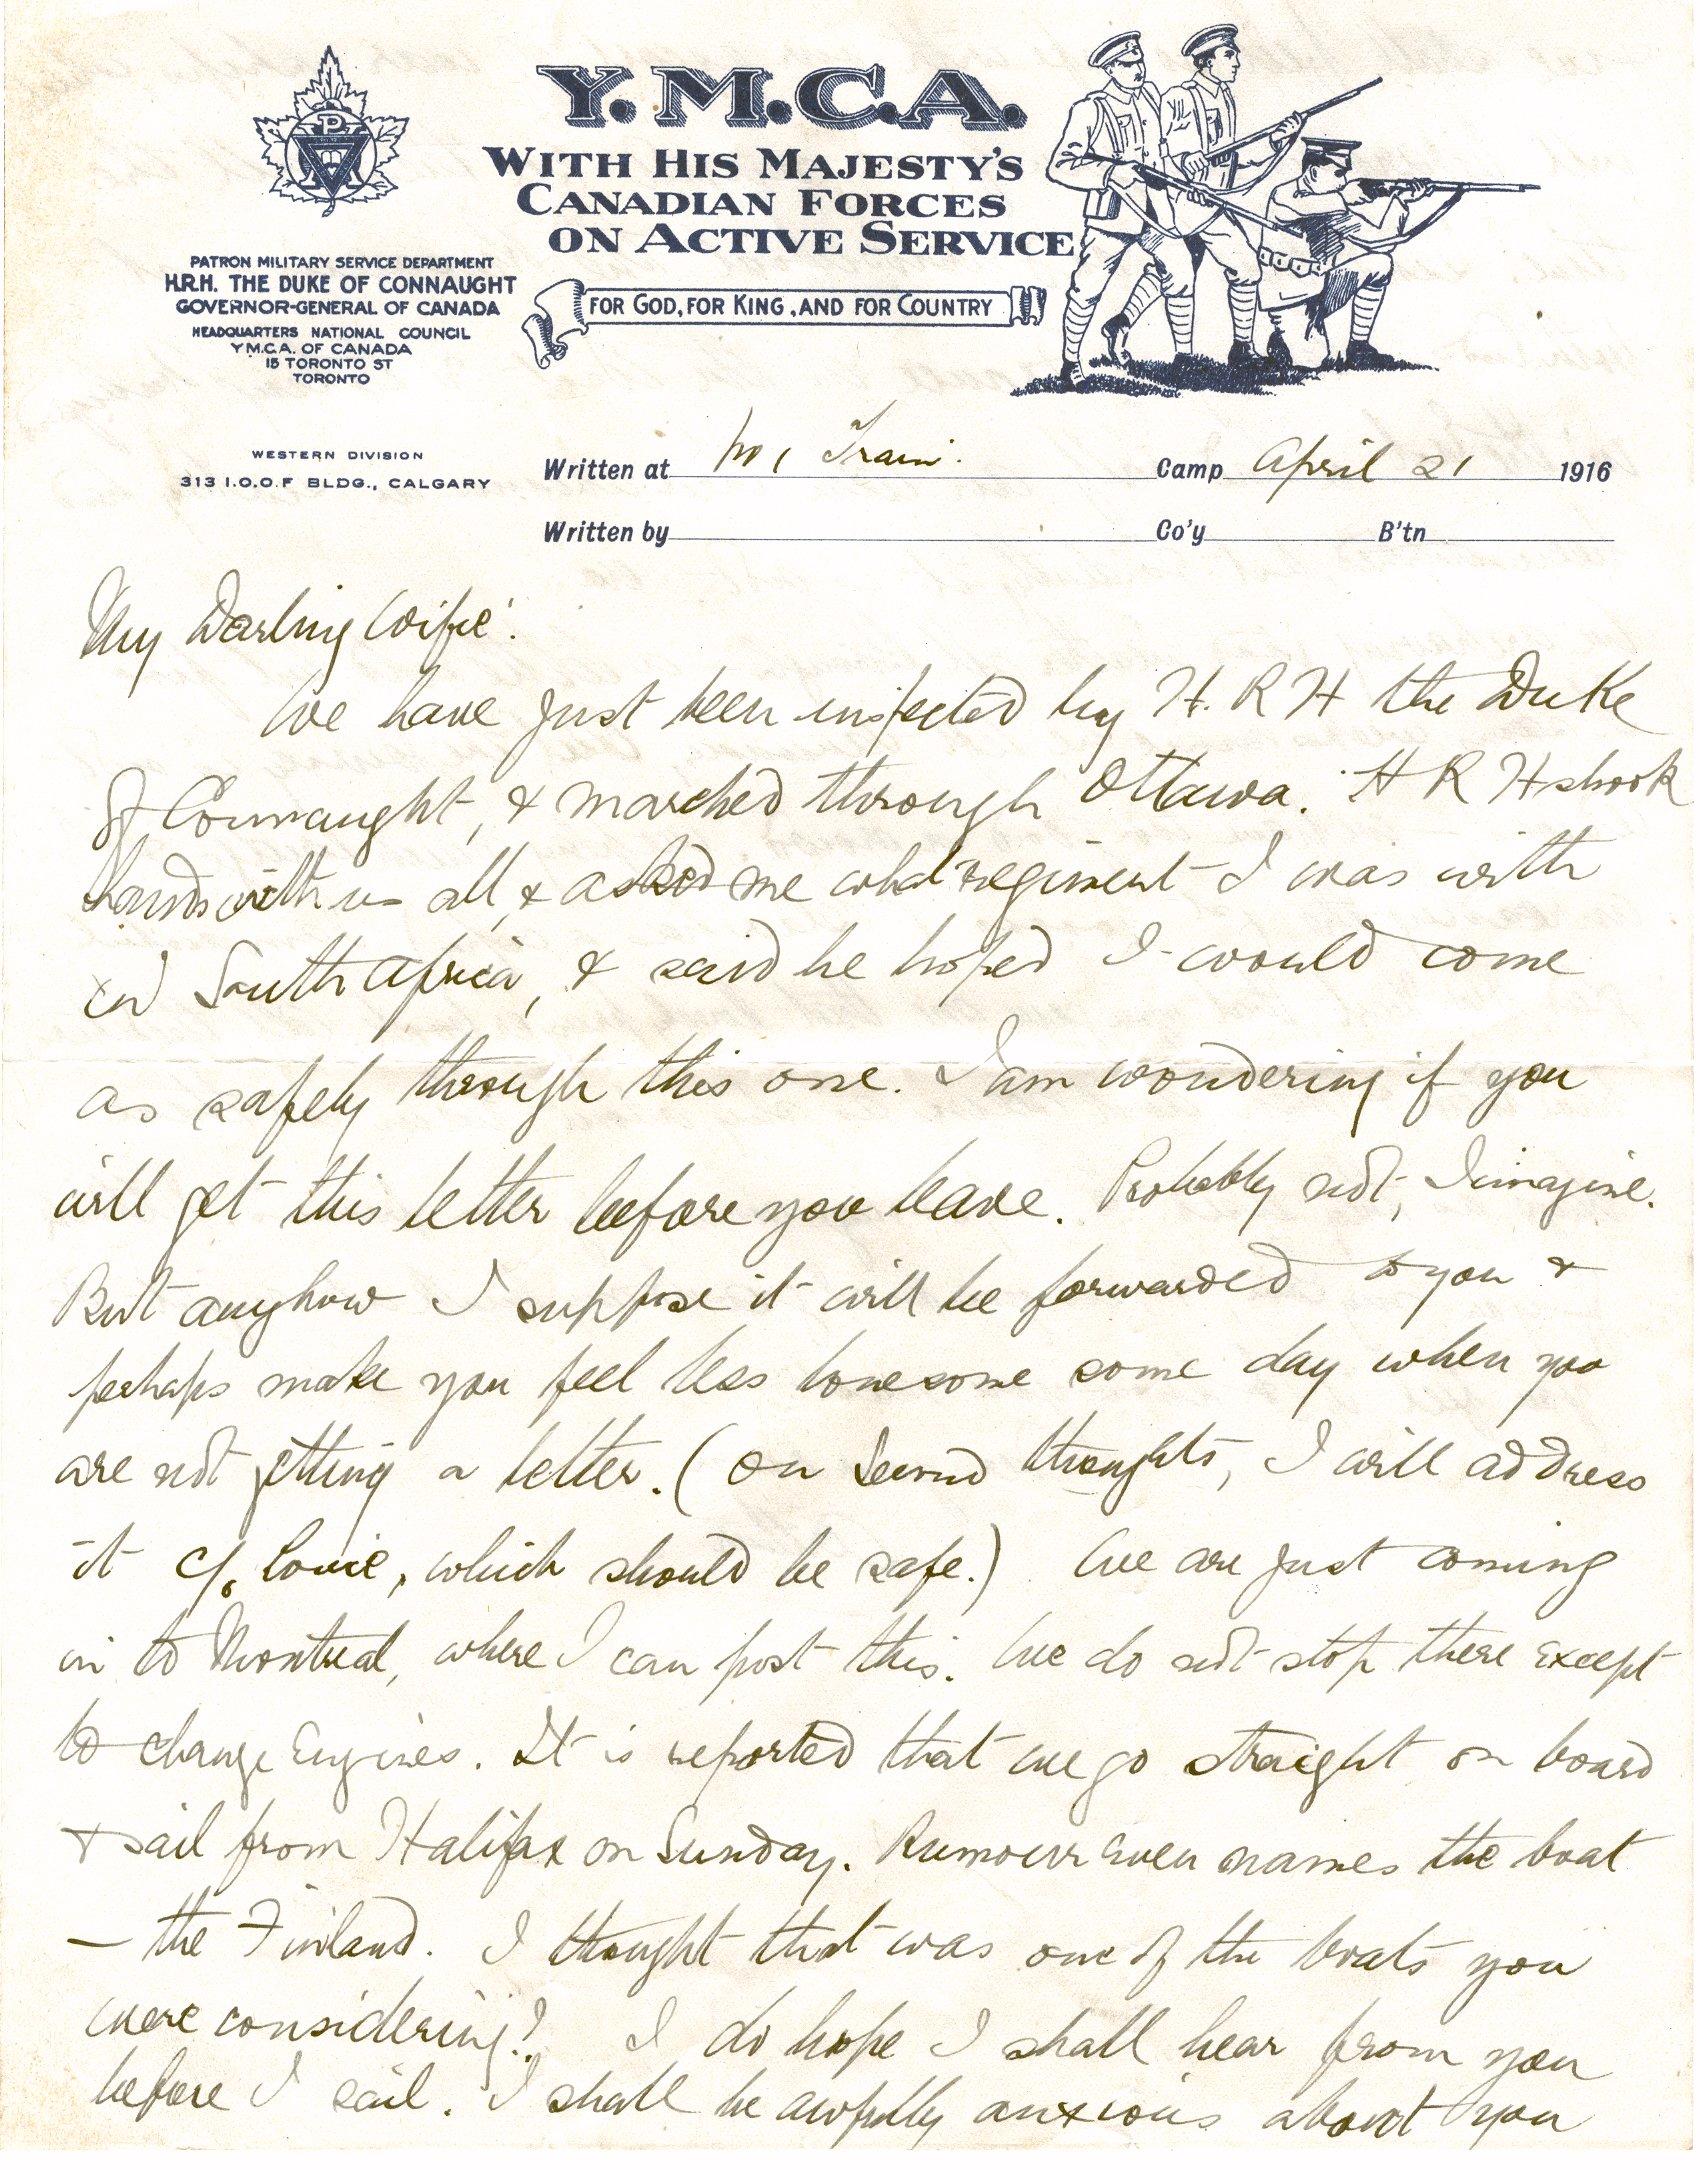 Y.M.C.A.
WITH HIS MAJESTY'S
CANADIAN FORCES
ON ACTIVE SERVICE
FOR GOD, FOR KING, AND FOR COUNTRY
PATRON MILITARY SERVICE DEPARTMENT
H.R.H. THE DUKE OF CONNAUGHT
GOVERNOR-GENERAL OF CANADA
HEADQUARTERS NATIONAL COUNCIL
Y.M.C.A. OF CANADA
15 TORONTO ST
TORONTO
WESTERN DIVISION
313 I.O.O.F BLDG., CALGARY
Written at No 1 Train. Camp April 21 1916
Written by Co'y B'tn
My Darling Wifie!
We have just been inspected by H.R H the Duke
of Connaught, & marched through Ottawa. H R H shook
hands with us all, & asked me what regiment I was with
in South Africa, & said he hoped I would come
as safely through this one. I am wondering if you
will get this letter before you leave. Probably not, I imagine.
But anyhow I suppose it will be forwarded to you &
perhaps make you feel less lonesome some day when you
are not getting a letter. (On second thoughts, I will address
it c/o Lovie, which should be safe.) We are just coming
in to Montreal, where I can post this. We do not stop there except
to change Engines. It is reported that we go straight on board
& sail from Halifax on Sunday. Rumour even names the boat
— the Finland. I thought that was one of the boats you
were considering? I do hope I shall hear from you
before I sail. I shall be awfully anxious about you